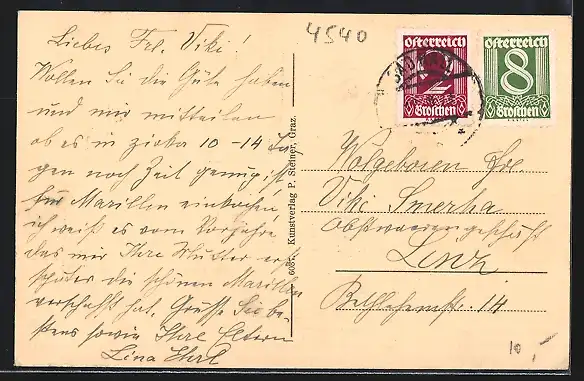 Liebes Frl. Viki!
Wollen Sie die Güte haben
und mir mitteilen
ob es in zirka 10-14 Ta-
gen noch Zeit genug ist
für Marillen einkochen
ich weiß es vom Vorjahre
das mir Ihre Mutter erst
später die schönen Marillen
verschafft hat. Grüsse Sie be-
stens sowie Ihre Eltern
Lina
6087 Kunstverlag P. Steiner, Graz.
4540
Österreich
2
Groschen
Österreich
8
Groschen
Wolgeboren Frl.
Viki Smerka
Obstwarengeschäft
Linz
14
10